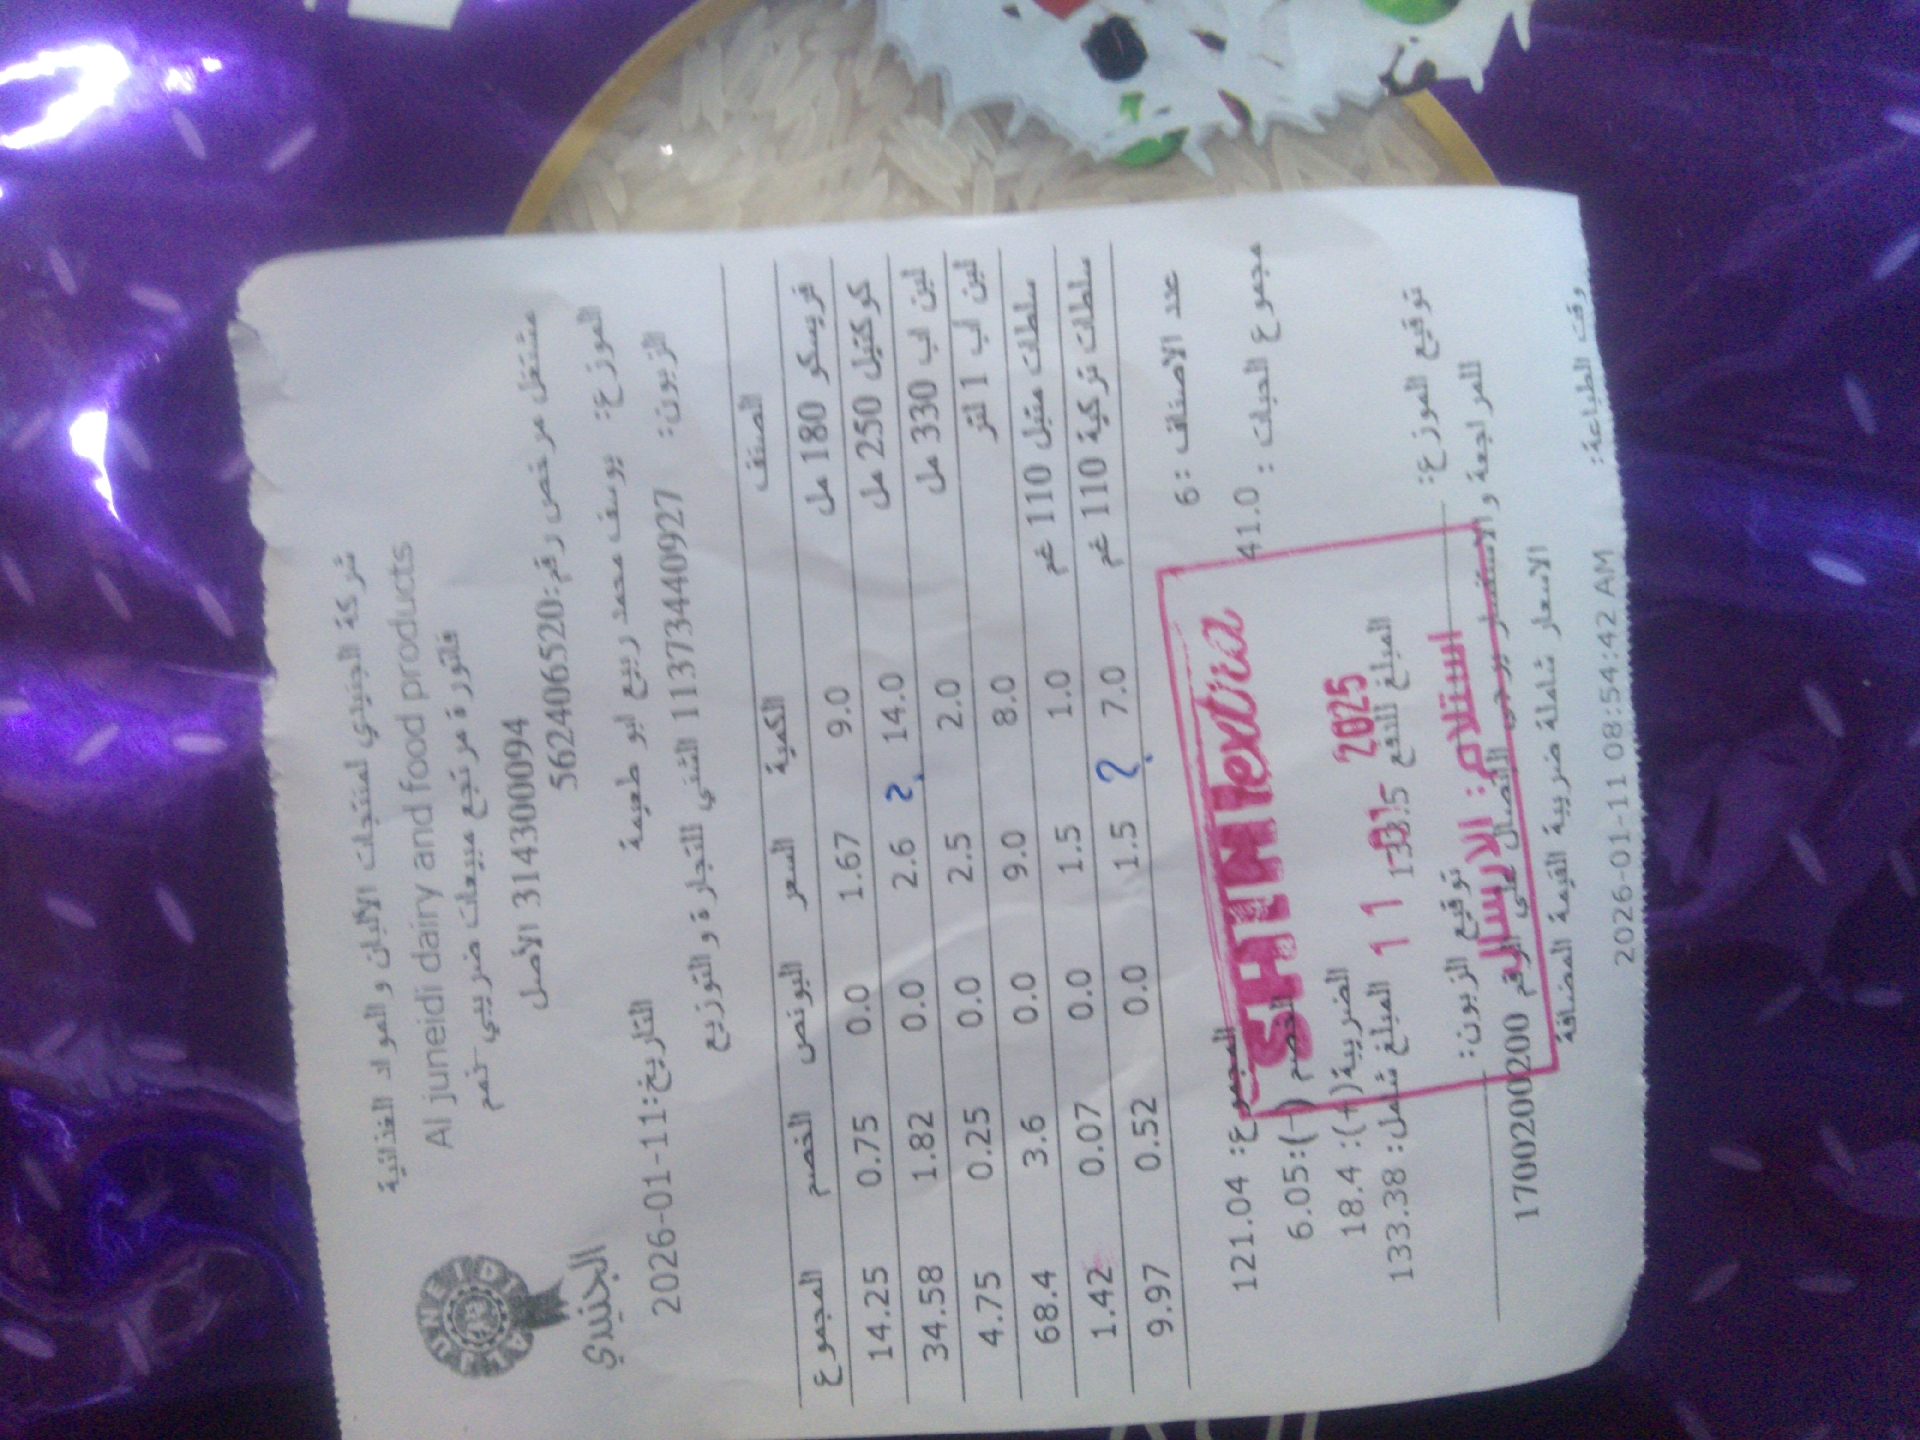 شركة الجنيدي لمنتجات الألبان و المواد الغذائية
Al juneidi dairy and food products
فاتورة مرتجع مبيعات ضريبي خصم
314300094 الأصل
مشتغل مرخص رقم:562406520
AL JUNEIDI
الجنيدي
الموزع: يوسف محمد ربيع ابو طعيمة
التاريخ:2026-01-11
الزبون: 1137344092​7 الشني للتجارة و التوزيع
الصنف الكمية السعر البونص الخصم المجموع
فريسكو 180 مل 9.0 1.67 0.0 0.75 14.25
كوكتيل 250 مل 14.0 2.6 0.0 1.82 34.58
لبن اب 330 مل 2.0 2.5 0.0 0.25 4.75
لبن اب 1 لتر 8.0 9.0 0.0 3.6 68.4
سلطات متبل 110 غم 1.0 1.5 0.0 0.07 1.42
سلطات تركية 110 غم 7.0 1.5 0.0 0.52 9.97
عدد الاصناف :6
المجموع: 121.04
مجموع الحبات : 41.0
الخصم (-):6.05
الضريبة(+): 18.4
المبلغ للدفع
المبلغ شامل: 133.38
SHINI extra
11 -01- 2025
استلام: الارسالية
توقيع الموزع:
توقيع الزبون:
للمراجعة و الاستفسار يرجى الاتصال على الرقم 1700200200
الاسعار شاملة ضريبة القيمة المضافة
وقت الطباعة: 2026-01-11 08:54:42 AM